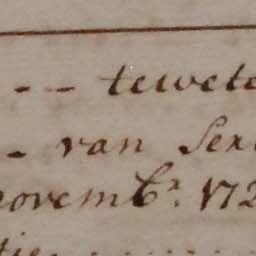 - - tewete
- van Sen
novemb.r 172
tie